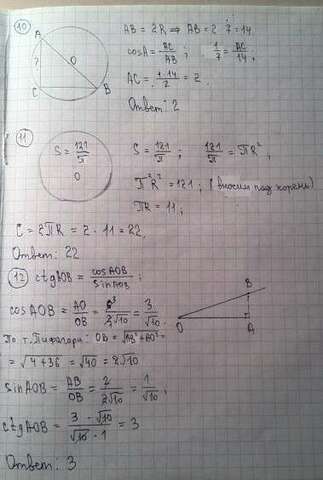 10
A
?
O
C
B
AB = 2R ⇒ AB = 2·7 = 14.
cosA = AC/AB; 1/7 = AC/14;
AC = 1·14/7 = 2.
Ответ: 2
11
S = 121/π
O
S = 121/π; 121/π = πR²;
π²R² = 121; (вносим под корень)
πR = 11;
C = 2πR = 2 · 11 = 22.
Ответ: 22
12
ctgAOB = cosAOB/sinAOB;
cosAOB = AO/OB = 6³/2√10 = 3/√10.
По т. Пифагора: OB = √AB²+AO² =
= √4+36 = √40 = 2√10
B
O
A
sinAOB = AB/OB = 2/2√10 = 1/√10;
ctgAOB = 3·√10/√10·1 = 3
Ответ: 3